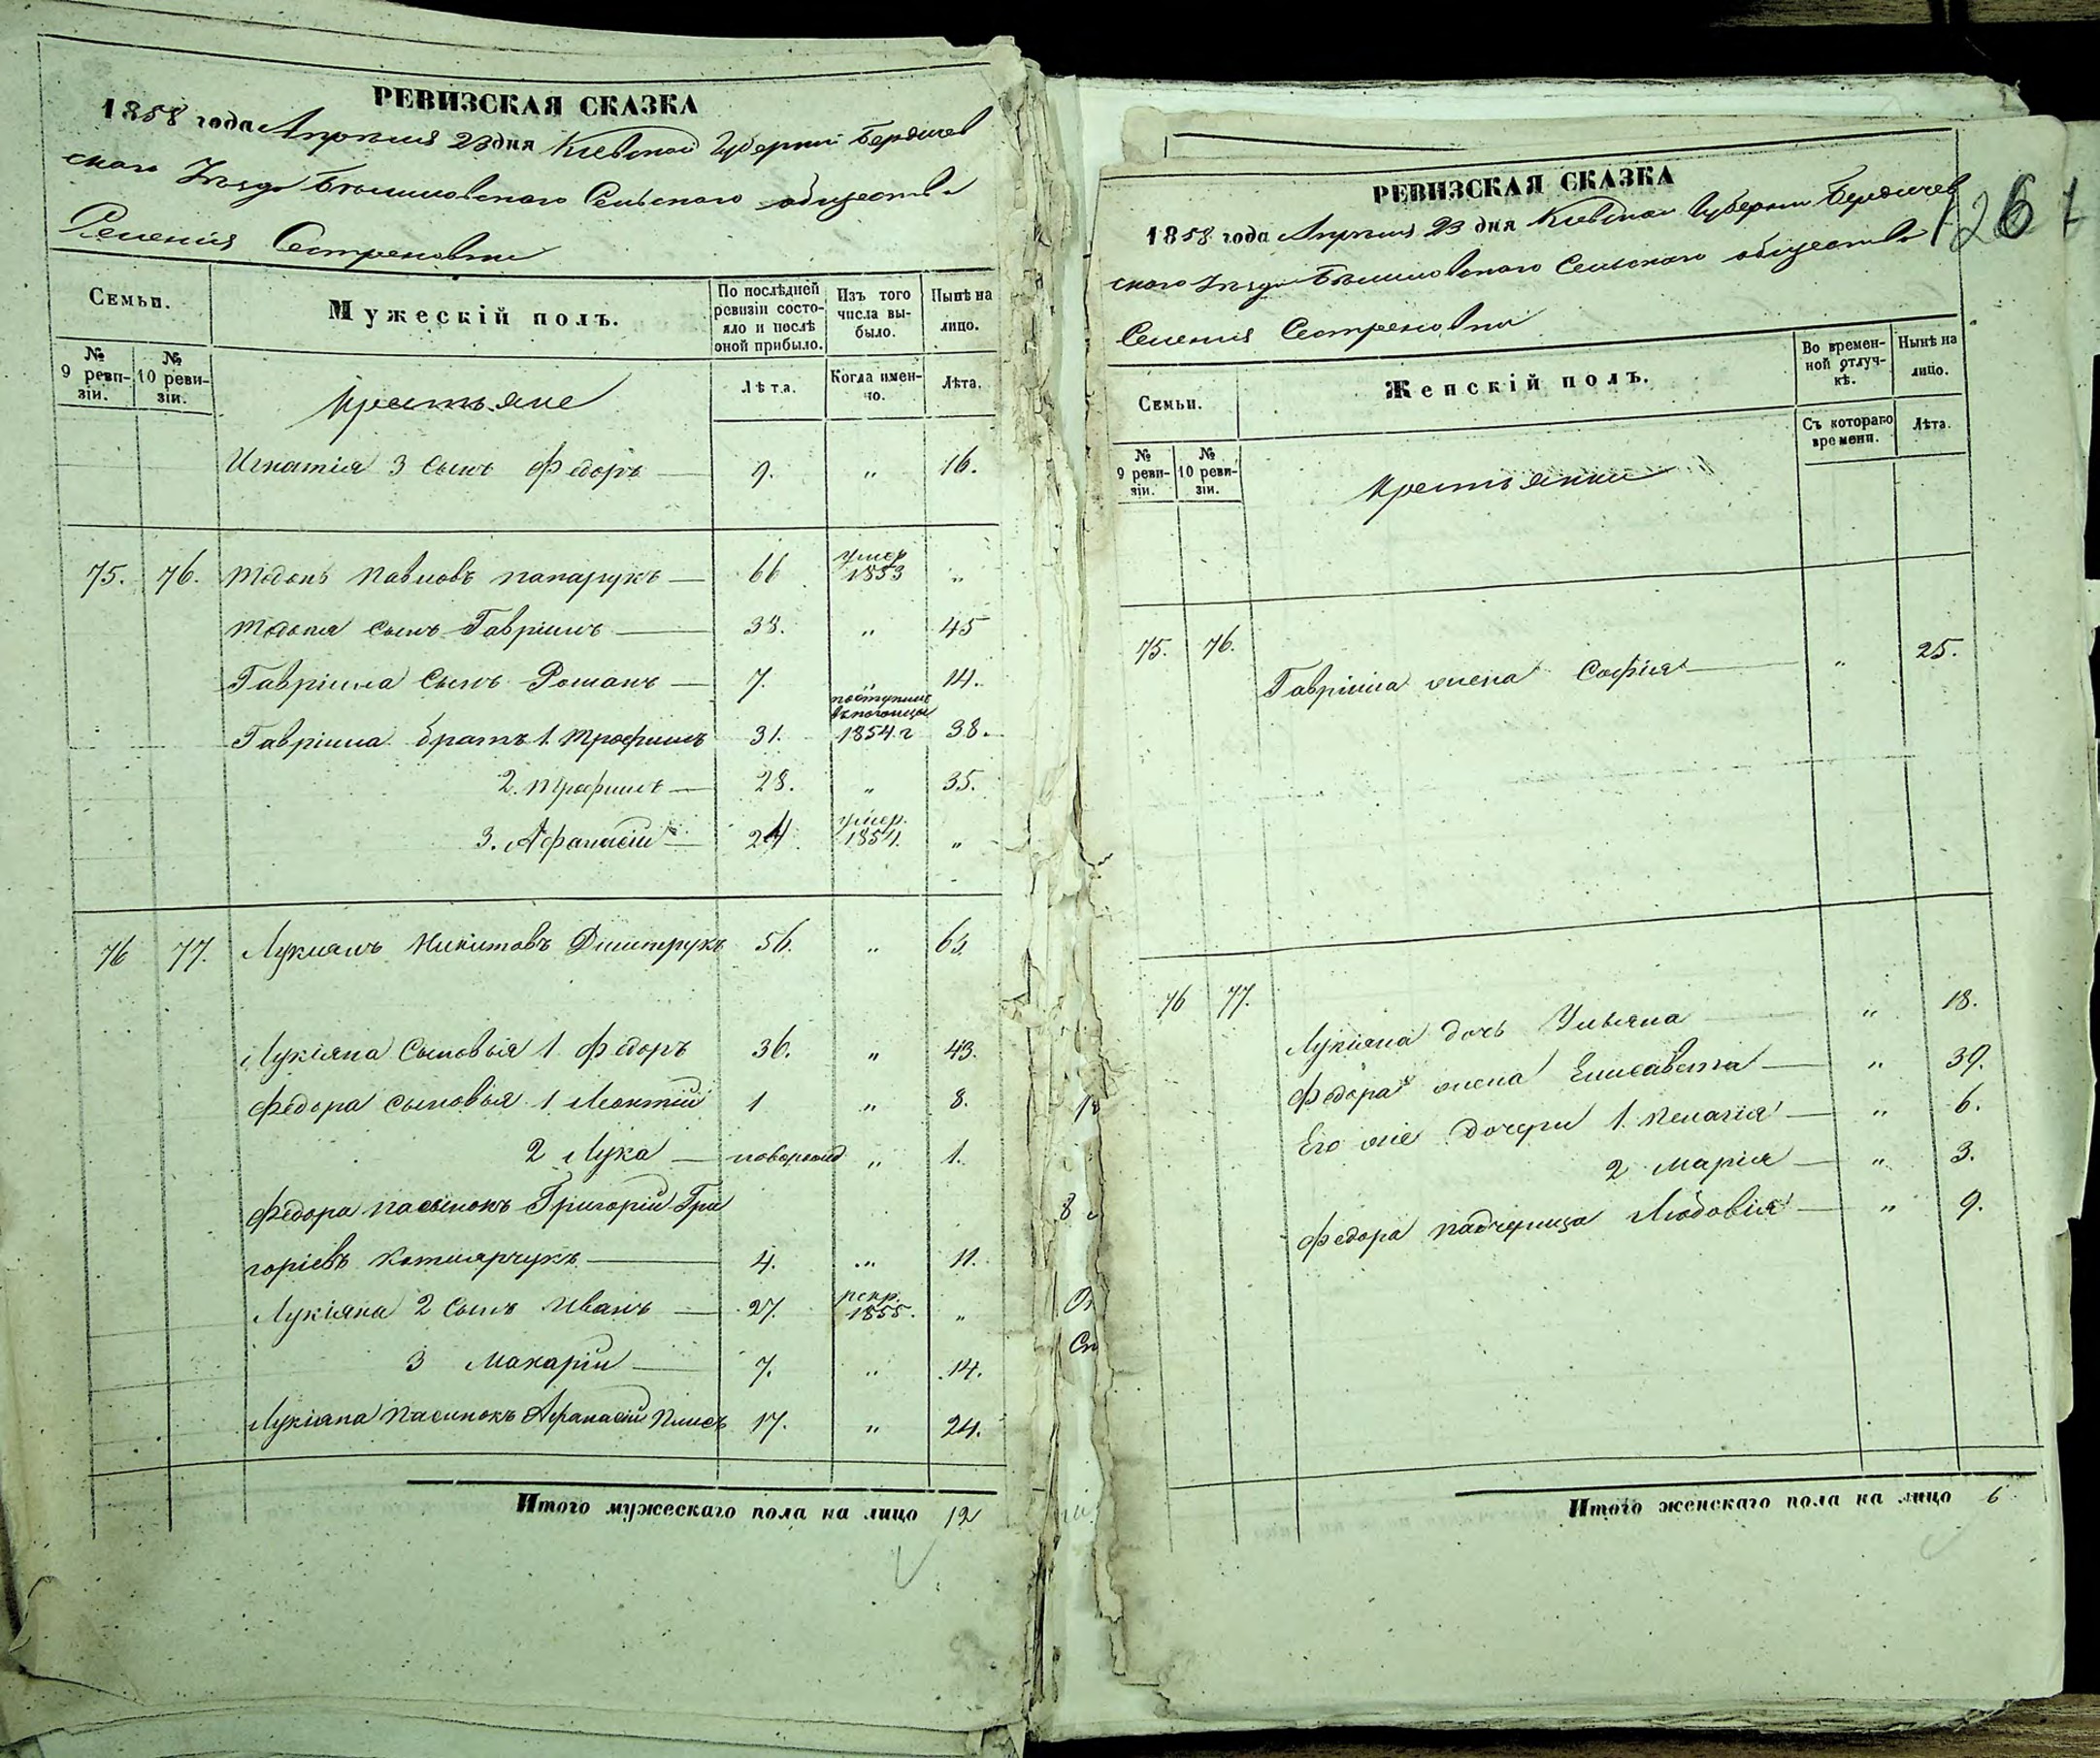 РЕВИЗСКАЯ СКАЗКА
1858 года Апреля 23 дня Киевской Губерніи Бердичев
скаго Уезда Сельского общества
Селенія Сестреновки
Семьи.
Мужескій полъ.
По послѣдней ревизіи состояло и послѣ оной прибыло.
Изъ того числа выбыло.
Нынѣ на лицо.
№ 9 ревизіи.
№ 10 ревизіи.
Крестьяне
Лѣта.
Когда именно.
Лѣта.
Игнатія 3 сынъ Федоръ — 9. " 16.
75. 76. Павловъ Папарукъ — 66 умер 1853 "
сынъ Гавріилъ — 38. " 45
Гавріила сынъ Романъ — 7. " 14.
Гавріила братъ 1. Трофимъ 31. 1854 г 38.
2. Трофимъ — 28. " 35.
3. Афанасій — 24 умер. 1854. "
76 77. Лукіянъ Никитовъ Дмитрукъ 56. " 63.
Лукіяна сыновья 1 Федоръ 36. " 43.
Федора сыновья 1 Леонтій 1 " 8.
2 Лука — новорожд " 1.
Федора пасынокъ Григорій Гри
горіевъ Котлярчукъ — 4. " 11.
Лукіяна 2 сынъ Иванъ — 27. рекр. 1855. "
3 Макарій — 7. " 14.
Лукіяна пасинокъ Афанасій 17. " 24.
Итого мужескаго пола на лицо 12
РЕВИЗСКАЯ СКАЗКА
1858 года Апреля 23 дня Киевской Губерніи Бердичев
скаго Уезда Сельского общества
Селенія Сестреновки
126
Семьи.
Женскій полъ.
Во временной отлучкѣ.
Нынѣ на лицо.
№ 9 ревизіи.
№ 10 ревизіи.
Крестьянки
Съ котораго времени.
Лѣта.
75. 76. Гавріила жена Софія — " 25.
76 77. Лукіяна дочь Ульяна — " 18.
Федора жена Елисавета — " 39.
Его же дочери 1. Пелагія — " 6.
2 Марія — " 3.
Федора падчерица — " 9.
Итого женскаго пола на лицо 6